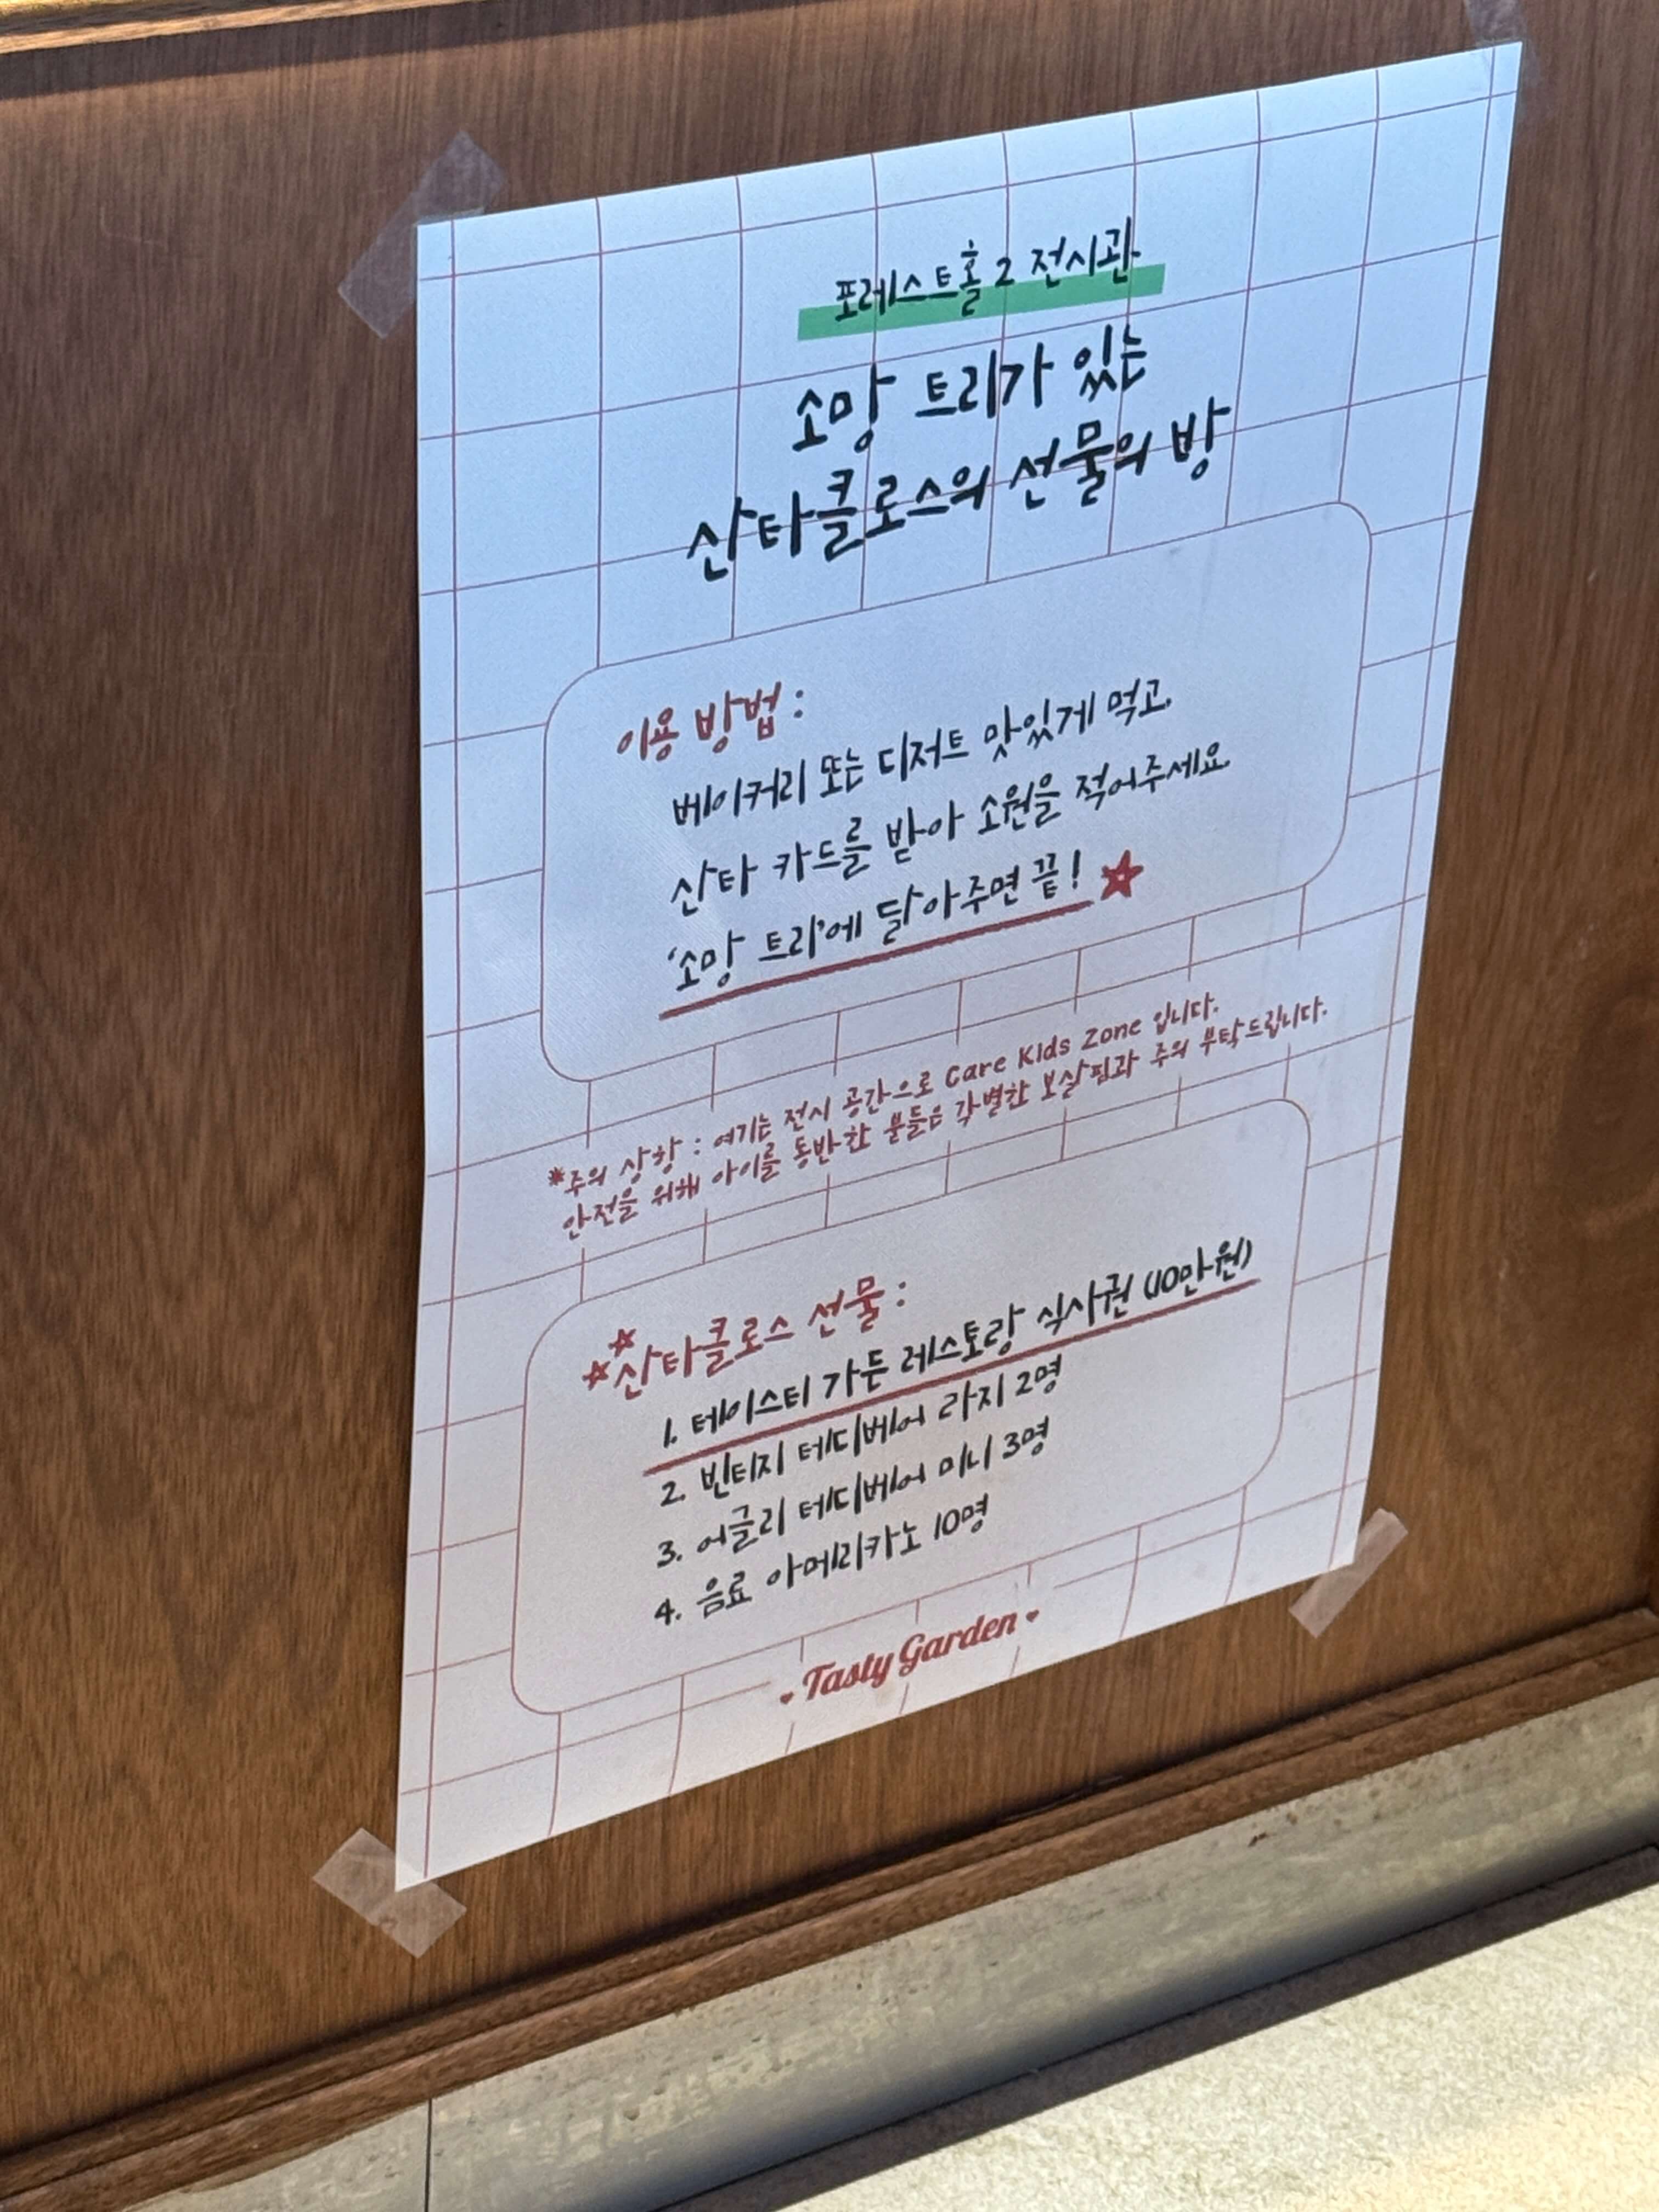 포레스트홀 2 전시관
소망 트리가 있는
산타클로스의 선물의 방
이용 방법 :
베이커리 또는 디저트 맛있게 먹고,
산타 카드를 받아 소원을 적어주세요.
'소망 트리'에 달아주면 끝!
*주의 상항 : 여기는 전시 공간으로 Care Kids Zone 입니다.
안전을 위해 아이를 동반한 분들은 각별한 보살핌과 주의 부탁드립니다.
산타클로스 선물 :
1. 테이스티 가든 레스토랑 식사권 (10만원)
2. 빈티지 테디베어 라지 2명
3. 어글리 테디베어 미니 3명
4. 음료 아메리카노 10명
Tasty Garden